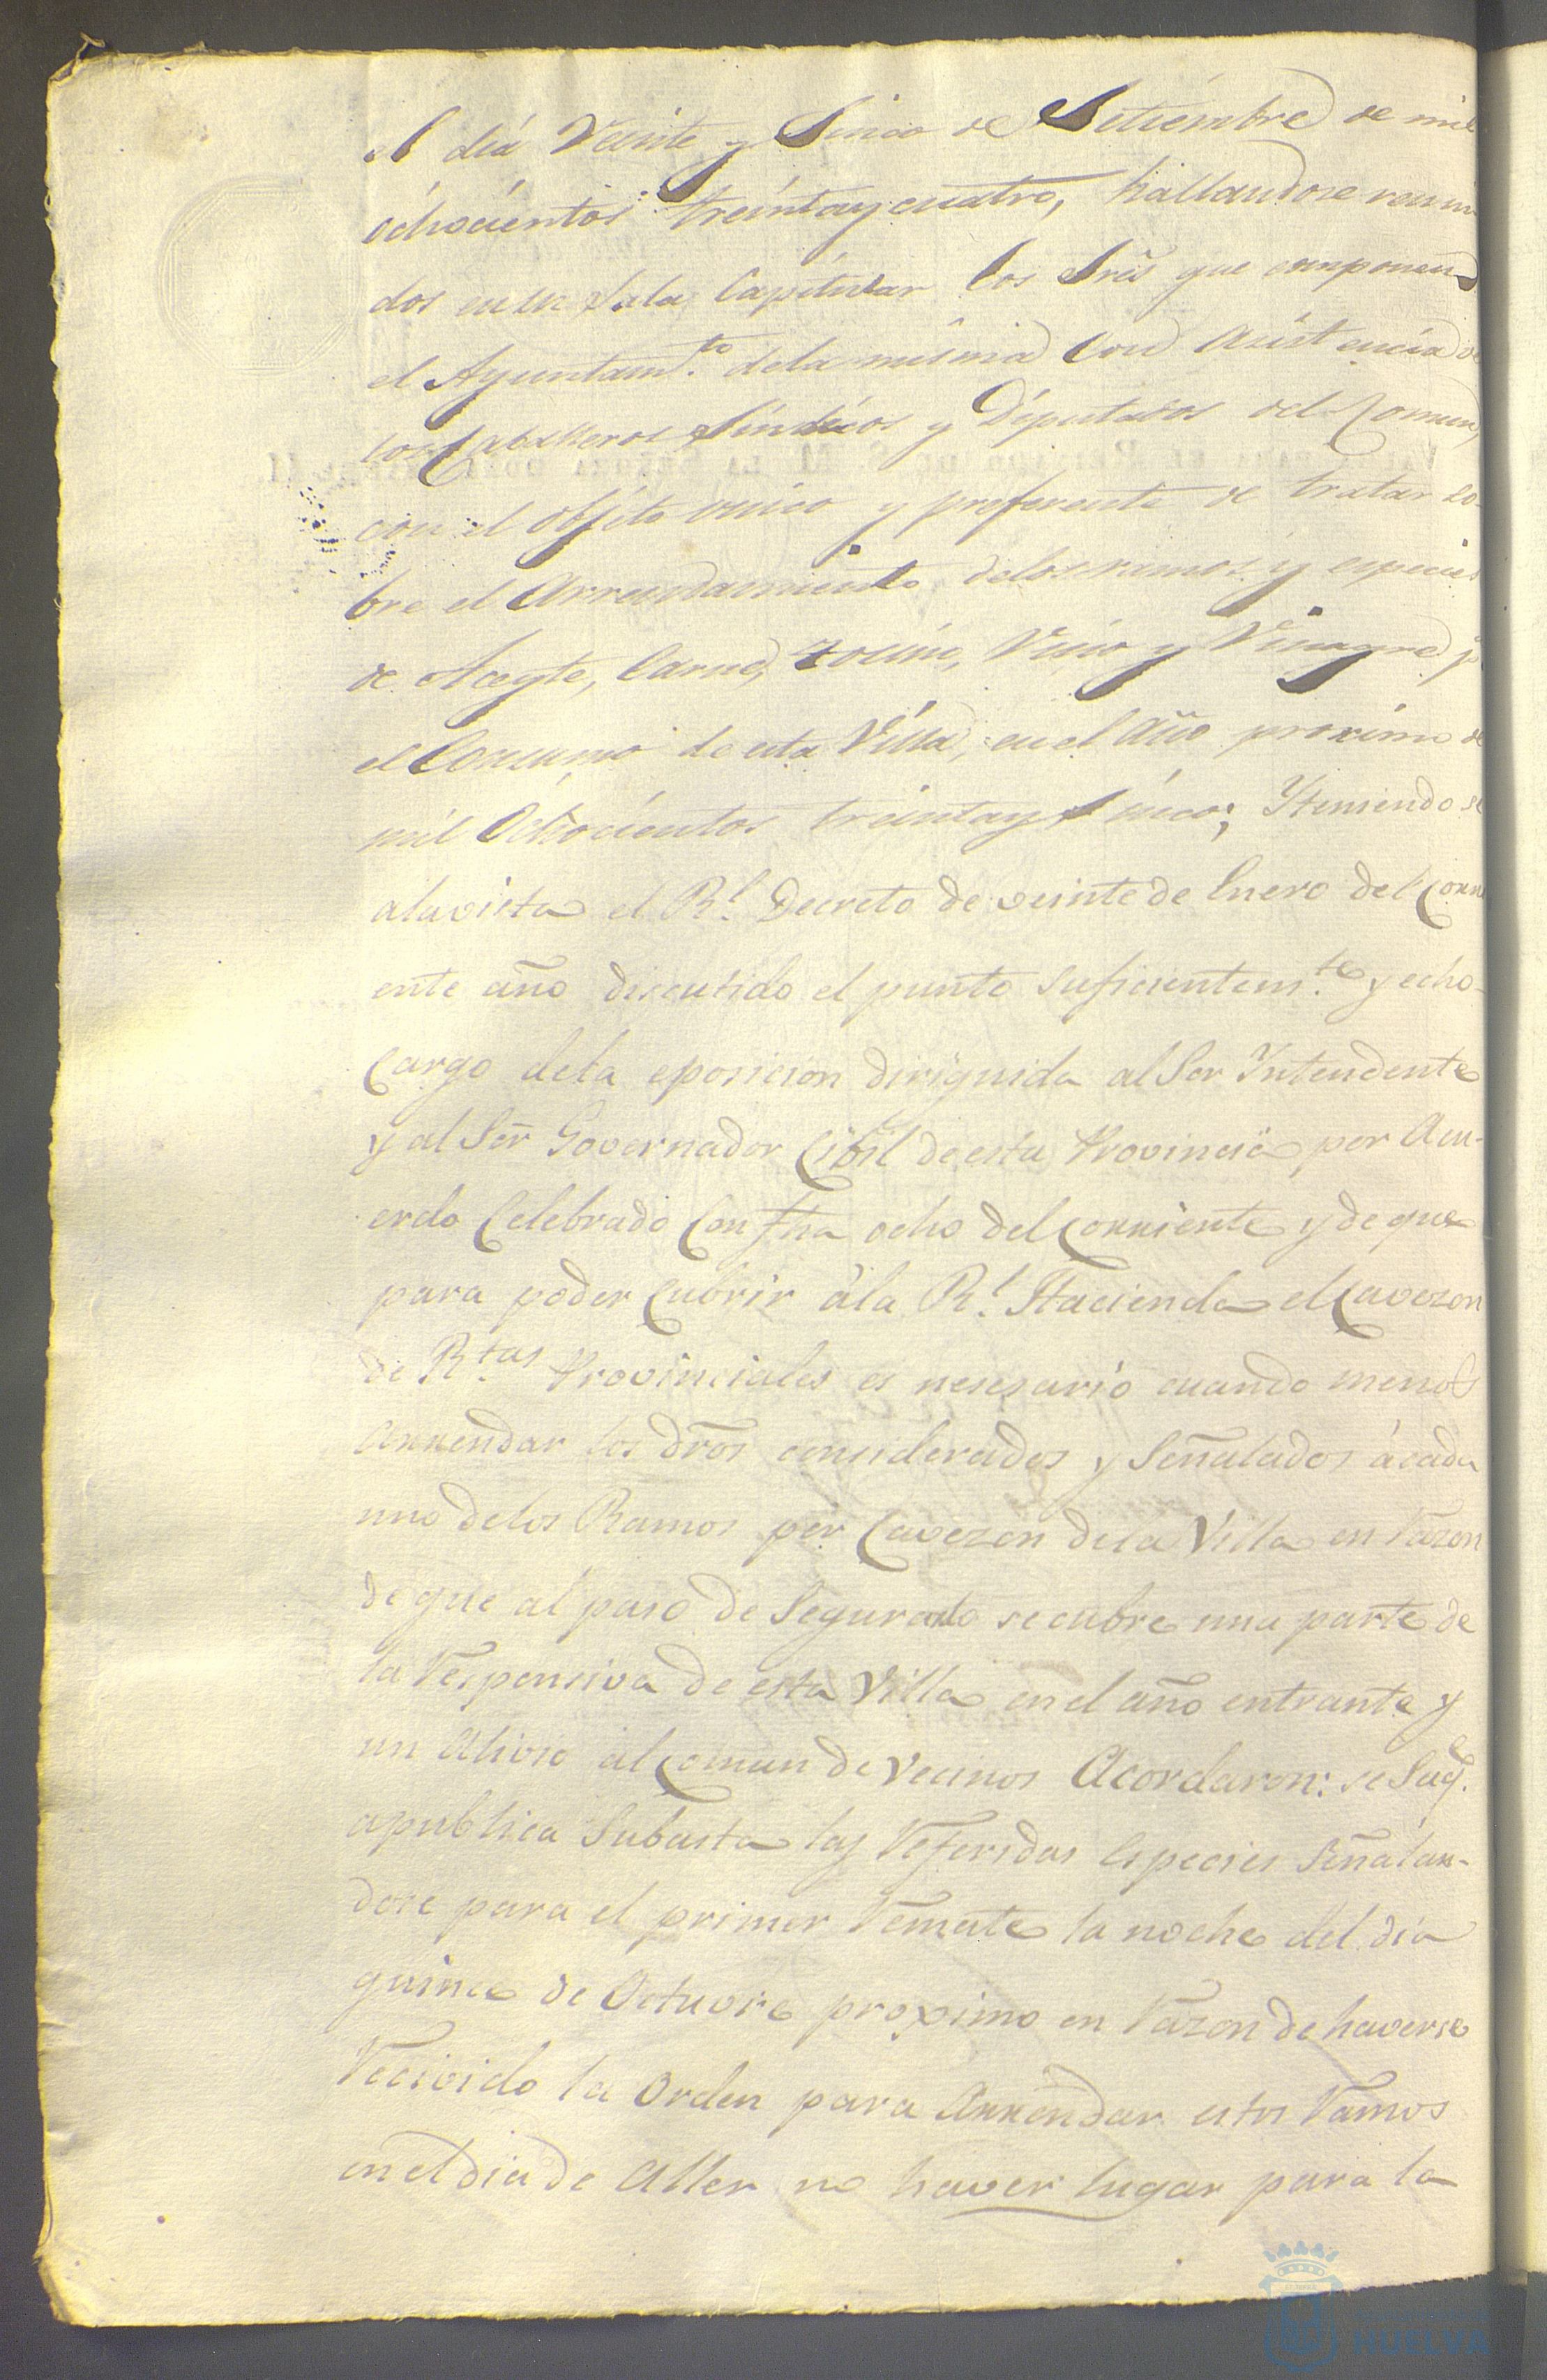 el día Veinte y Sinco de Setiembre de mil
óchocientos treinta y cuatro, hallandose reuni
dos en su Sala Capitular los Sres que componen
el Ayuntam.to de la misma con asistencia de
los Caballeros Sindicos y Diputados del Comun,
con el objeto unico y preferente de tratar so-
bre el Arrendamiento de los ramos y especies
de Aceyte, Carne, tocino, Vino y Vinagre pa
el Consumo de esta Villa, en el Año proximo de
mil Ochocientos treinta y Sinco; Y teniendose
ala vista el Rl. Decreto de veinte de Enero del Corri
ente año discutido el punto suficientem.te y echo
Cargo dela eposicion diriguida al Sor Yntendente
y al Señ Governador Cibil de esta Provincia por Acu-
erdo Celebrado Con fha ocho del Corriente y de que
para poder Cubrir ála Rl. Hacienda el Cavezon
de R.tas Provinciales es nesesario cuando menos
Arrendar los dros considerados y Señalados ácada
uno delos Ramos por Cavezon dela Villa en razon
de que al paso de Segurado se cubre una parte de
la responsiva de esta Villa en el año entrante y
un Alivio al Comun de Vecinos Acordaron: se Saq.e
apublica Subasta las referidas Especies Señalan-
dose para el primer remate la noche del dia
quince de Octuvre proximo en razon de haverse
recivido la Orden para Arrendar estos ramos
en el dia de Aller no haver lugar para la
HUELVA